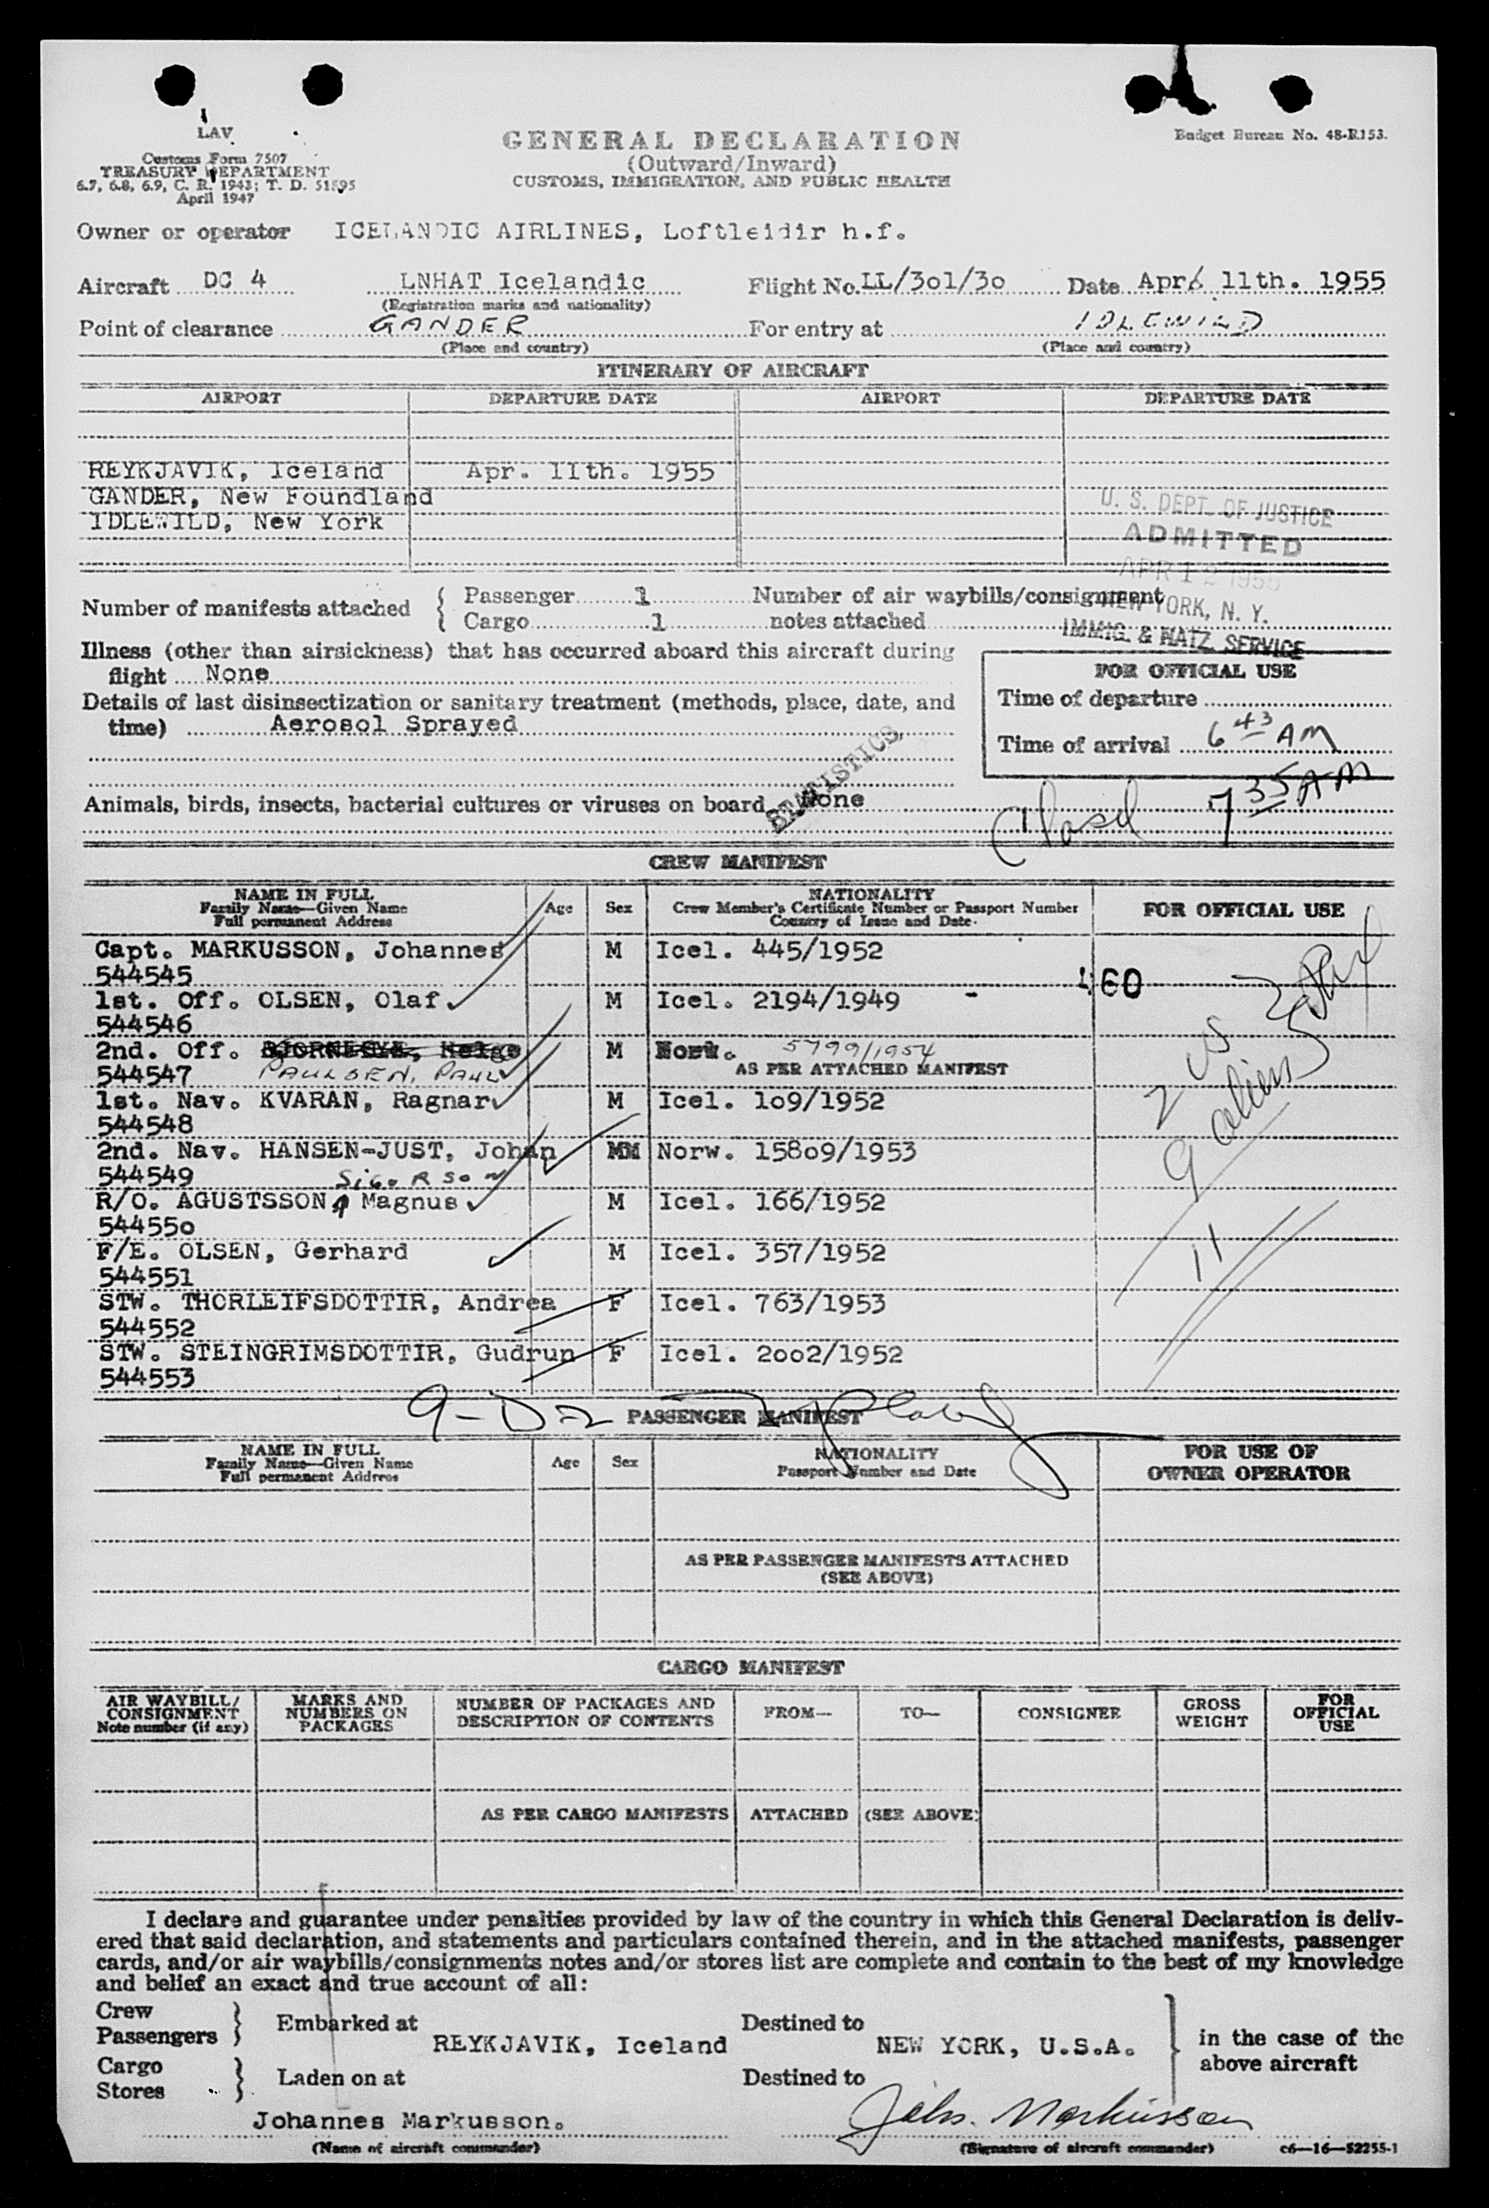 LAV
Customs Form 7507
TREASURY DEPARTMENT
6.7, 6.8, 6.9, C. R. 1943; T. D. 51595
April 1947
GENERAL DECLARATION
(Outward/Inward)
CUSTOMS, IMMIGRATION, AND PUBLIC HEALTH
Budget Bureau No. 48-R153.
Owner or operator ICELANDIC AIRLINES, Loftleidir h.f.
Aircraft DC 4 LNHAT Icelandic Flight No. LL/3o1/3o Date Apr. 11th. 1955
(Registration marks and nationality)
Point of clearance GANDER For entry at IDLEWILD
(Place and country) (Place and country)
ITINERARY OF AIRCRAFT
AIRPORT DEPARTURE DATE AIRPORT DEPARTURE DATE
REYKJAVIK, Iceland Apr. 11th. 1955
GANDER, New Foundland
IDLEWILD, New York
U. S. DEPT. OF JUSTICE
ADMITTED
APR 12 1955
NEW YORK, N. Y.
IMMIG. & NATZ. SERVICE
Number of manifests attached { Passenger 1 Number of air waybills/consignment
Cargo 1 notes attached
Illness (other than airsickness) that has occurred aboard this aircraft during
flight None
Details of last disinsectization or sanitary treatment (methods, place, date, and
time) Aerosol Sprayed
FOR OFFICIAL USE
Time of departure
Time of arrival 6 43 AM
STATISTICS
Animals, birds, insects, bacterial cultures or viruses on board None
Closed 7 35 AM
CREW MANIFEST
NAME IN FULL Age Sex NATIONALITY FOR OFFICIAL USE
Family Name—Given Name Crew Member's Certificate Number or Passport Number
Full permanent Address Country of Issue and Date
Capt. MARKUSSON, Johannes M Icel. 445/1952
544545
460
1st. Off. OLSEN, Olaf M Icel. 2194/1949
544546
2nd. Off. BJORNEBYE, Helge M Norw. 5799/1954
544547 PAULSEN, PAUL AS PER ATTACHED MANIFEST
1st. Nav. KVARAN, Ragnar M Icel. 1o9/1952
544548
2nd. Nav. HANSEN-JUST, Johan MM Norw. 158o9/1953
544549
R/O. AGUSTSSON, Magnus M Icel. 166/1952
54455o
F/E. OLSEN, Gerhard M Icel. 357/1952
544551
STW. THORLEIFSDOTTIR, Andrea F Icel. 763/1953
544552
STW. STEINGRIMSDOTTIR, Gudrun F Icel. 2oo2/1952
544553
2 US
9 aliens
11
9-D-2
PASSENGER MANIFEST
NAME IN FULL Age Sex NATIONALITY FOR USE OF
Family Name—Given Name Passport Number and Date OWNER OPERATOR
Full permanent Address
AS PER PASSENGER MANIFESTS ATTACHED
(SEE ABOVE)
CARGO MANIFEST
AIR WAYBILL/ CONSIGNMENT Note number (if any) MARKS AND NUMBERS ON PACKAGES NUMBER OF PACKAGES AND DESCRIPTION OF CONTENTS FROM— TO— CONSIGNEE GROSS WEIGHT FOR OFFICIAL USE
AS PER CARGO MANIFESTS ATTACHED (SEE ABOVE)
I declare and guarantee under penalties provided by law of the country in which this General Declaration is deliv-
ered that said declaration, and statements and particulars contained therein, and in the attached manifests, passenger
cards, and/or air waybills/consignments notes and/or stores list are complete and contain to the best of my knowledge
and belief an exact and true account of all:
Crew
Passengers } Embarked at REYKJAVIK, Iceland Destined to NEW YORK, U.S.A. } in the case of the
Cargo above aircraft
Stores } Laden on at Destined to
Johannes Markusson. Johs. Markusson
(Name of aircraft commander) (Signature of aircraft commander) c6—16—52255-1